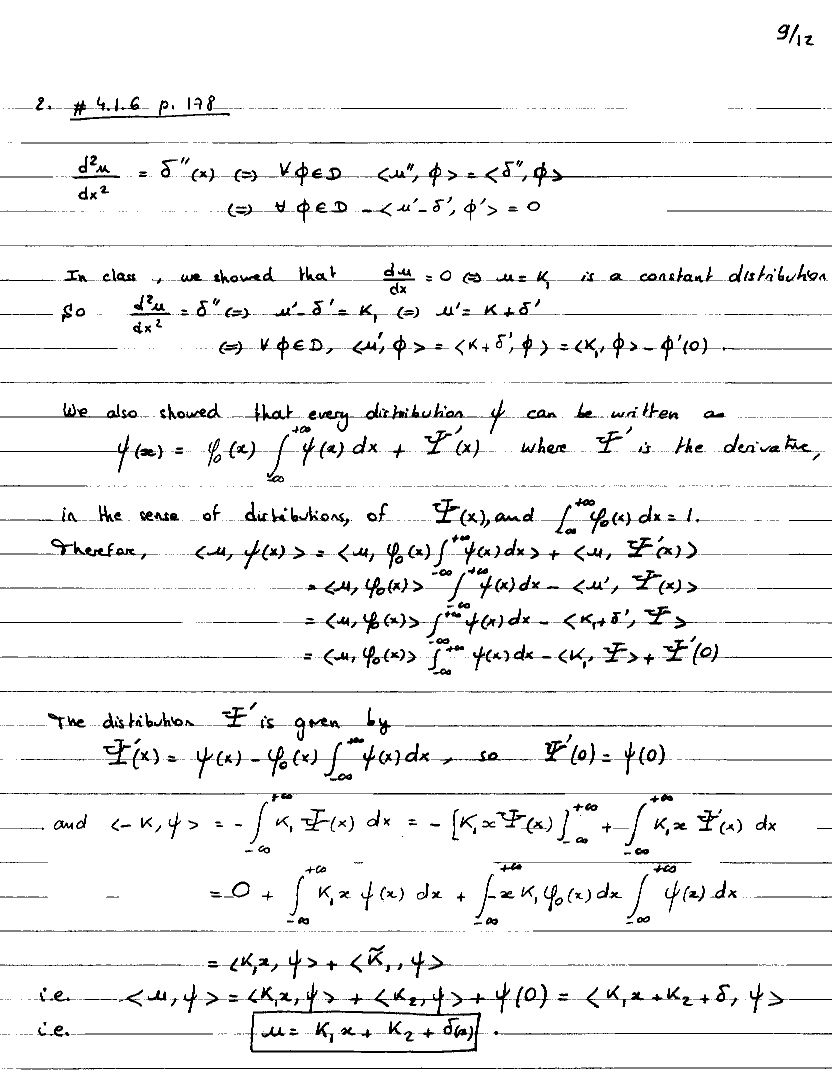 9/12
2. # 4.1.6 p. 178
d²u/dx² = δ''(x) (=) ∀ φ ∈ D <u'', φ> = <δ'', φ>
(=) ∀ φ ∈ D - <u' - δ', φ'> = 0
In class, we showed that du/dx = 0 (=) u = K₁ is a constant distribution
So d²u/dx² = δ'' (=) u' - δ' = K₁ (=) u' = K + δ'
(=) ∀ φ ∈ D, <u', φ> = <K + δ', φ> = <K₁, φ> - φ'(0).
We also showed that every distribution ψ can be written as
ψ(x) = φ₀(x) ∫_{-∞}^{+∞} ψ(x) dx + Ψ'(x) where Ψ' is the derivative,
in the sense of distributions, of Ψ(x), and ∫_{-∞}^{+∞} φ₀(x) dx = 1.
Therefore, <u, ψ(x)> = <u, φ₀(x) ∫_{-∞}^{+∞} ψ(x) dx> + <u, Ψ'(x)>
= <u, φ₀(x)> ∫_{-∞}^{+∞} ψ(x) dx - <u', Ψ(x)>
= <u, φ₀(x)> ∫_{-∞}^{+∞} ψ(x) dx - <K₁ + δ', Ψ>
= <u, φ₀(x)> ∫_{-∞}^{+∞} ψ(x) dx - <K₁, Ψ> + Ψ'(0)
The distribution Ψ' is given by
Ψ'(x) = ψ(x) - φ₀(x) ∫_{-∞}^{+∞} ψ(x) dx, so Ψ'(0) = ψ(0)
and <-K, ψ> = - ∫_{-∞}^{+∞} K₁ Ψ(x) dx = - [K₁ x Ψ(x)]_{-∞}^{+∞} + ∫_{-∞}^{+∞} K₁ x Ψ'(x) dx
= 0 + ∫_{-∞}^{+∞} K₁ x ψ(x) dx + ∫_{-∞}^{+∞} -x K₁ φ₀(x) dx ∫_{-∞}^{+∞} ψ(x) dx
= <K₁x, ψ> + <K̃₁, ψ>
i.e. <u, ψ> = <K₁x, ψ> + <K₂, ψ> + ψ(0) = <K₁x + K₂ + δ, ψ>
i.e. u = K₁x + K₂ + δ(x).